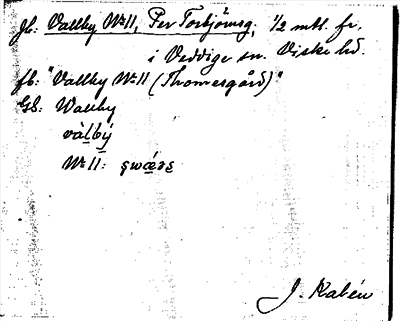 Jb: Vallby No 11, Per Torbjörnsg. 1/2 mtl. fr.
i Veddige sn. Viske hd.
fb: "Vallby No 11 (Thomasgård)"
GS: Wallby
vàlbý
No 11:
J. Kalén